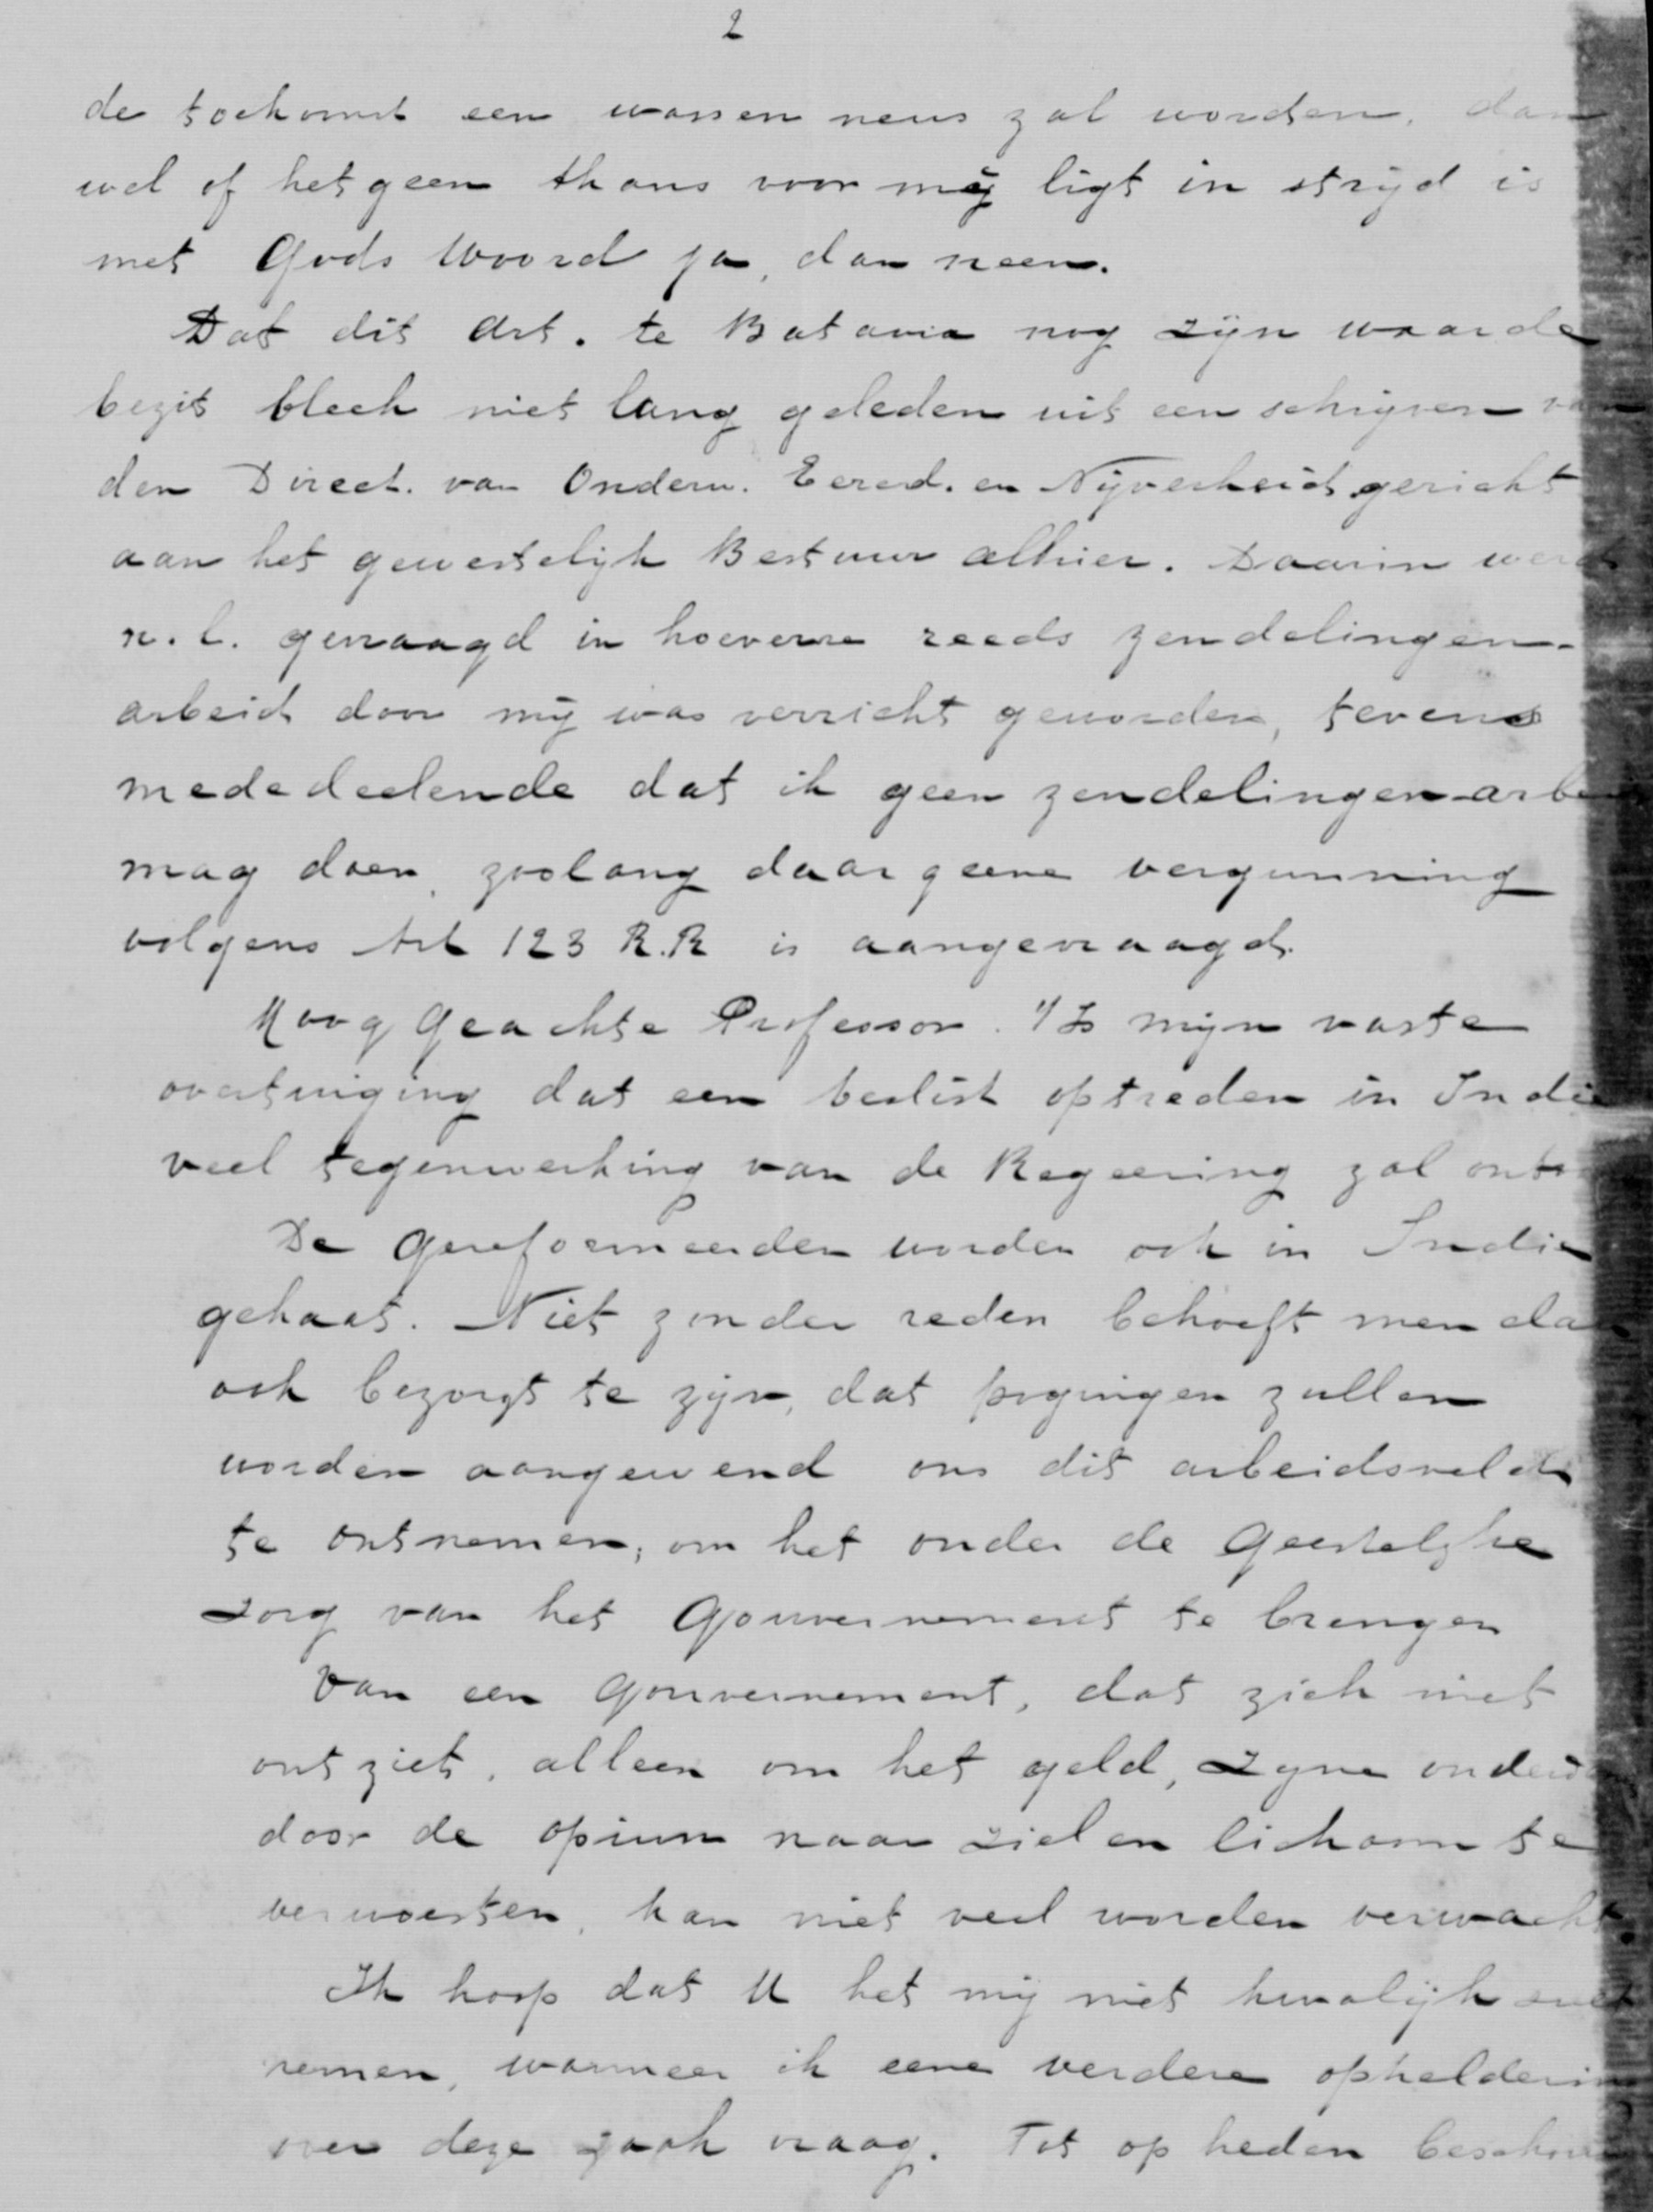 2
de toekomst een wassen neus zal worden, dan
wel of hetgeen thans voor mij ligt in strijd is
met Gods Woord ja, dan neen.
Dat dit Art. te Batavia nog zijn waarde
bezit bleek niet lang geleden uit een schrijven van
den Direct. van Onderw. Eered. en Nijverheid gericht
aan het gewestelijk Bestuur alhier. Daarin werd
n.l. gevraagd in hoeverre reeds zendelingen-
arbeid door mij was verricht geworden, tevens
mededeelende dat ik geen zendelingen-arbe
mag doen, zoolang daar geene vergunning
volgens Art 123 R.R is aangevraagd.
Hoog Geachte Professor. 't Is mijn vaste
overtuiging dat een beslist optreden in Indie
veel tegenwerking van de Regeering zal ont
De Gereformeerden worden ook in Indie
gehaat. Niet zonder reden behoeft men dan
ook bezorgt te zijn, dat pogingen zullen
worden aangewend ons dit arbeidsveld
te ontnemen, om het onder de Geestelijke
zorg van het Gouvernement te brengen
Van een Gouvernement, dat zich niet
ontziet, alleen om het geld, zijne onderda
door de opium naar ziel en lichaam te
verwoesten, kan niet veel worden verwacht.
Ik hoop dat U het mij niet kwalijk zult
nemen, wanneer ik eene verdere ophelderin
over deze zaak vraag. Tot op heden beschou